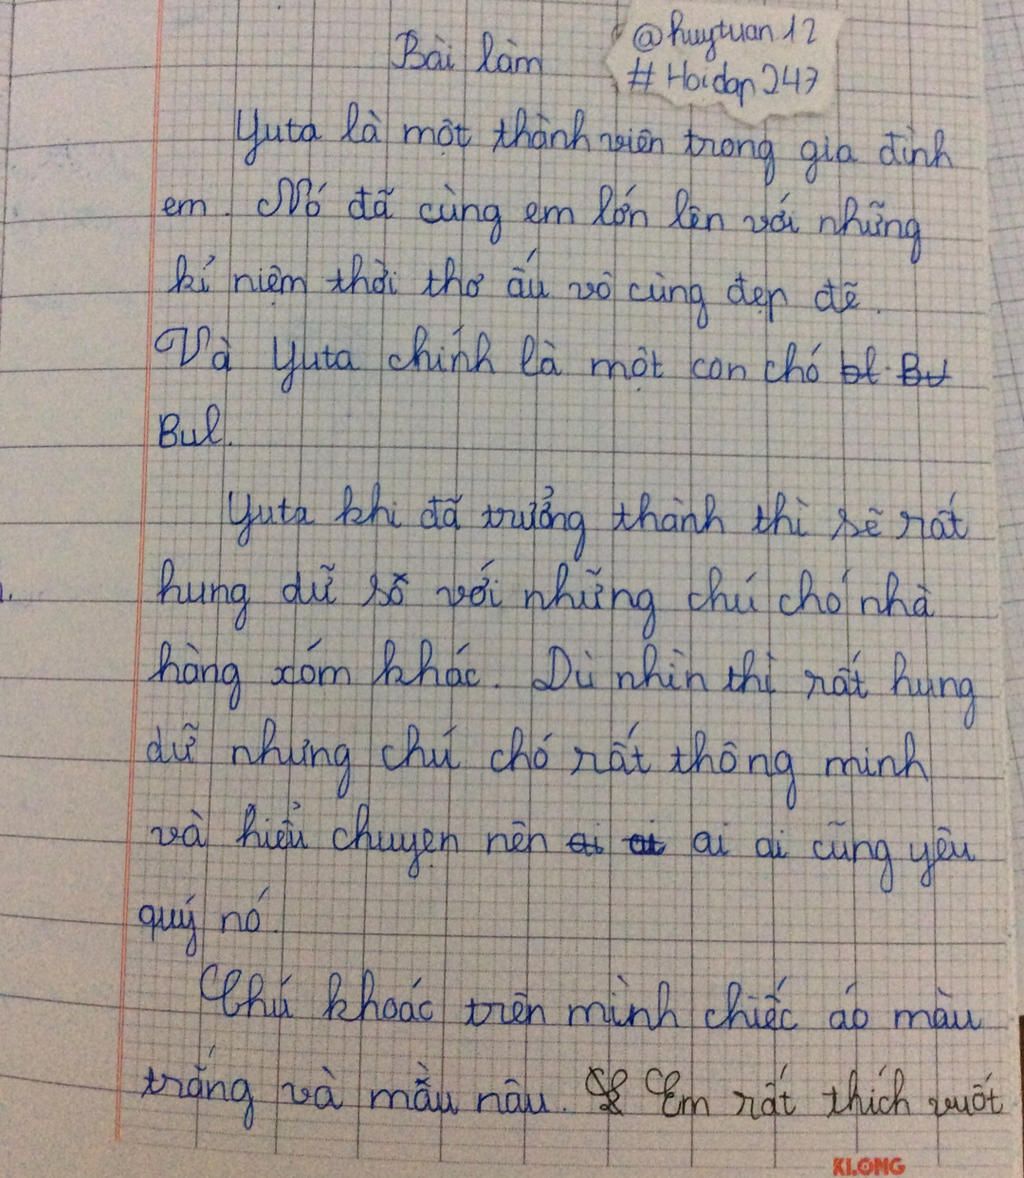 Bài làm
@huytuan12
#Hoidap247
Yuta là một thành viên trong gia đình
em. Nó đã cùng em lớn lên với những
kỉ niệm thời thơ ấu vô cùng đẹp đẽ.
Và Yuta chính là một con chó bl. Bu
Bul.
Yuta khi đã trưởng thành thì sẽ rất
hung dữ số với những chú chó nhà
hàng xóm khác. Dù nhìn thì rất hung
dữ nhưng chú chó rất thông minh
và hiểu chuyện nên ai ai ai ai cũng yêu
quý nó.
Chú khoác trên mình chiếc áo màu
trắng và mẫu nâu. Em rất thích vuốt
KLONG